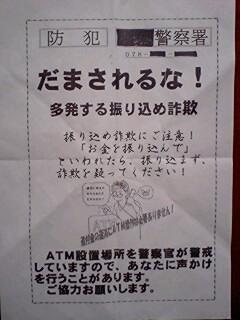 防犯 警察署
078- -
だまされるな！
多発する振り込め詐欺
振り込め詐欺にご注意！
「お金を振り込んで」
といわれたら、振り込まず、
詐欺を疑ってください！
ATM設置場所を警察官が警戒
していますので、あなたに声かけ
を行うことがあります。
ご協力お願いします。